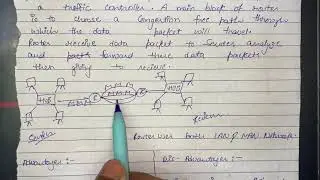 a traffic controller. A main work of router
is to choose a Congestion free path through
which the data packet will travel.
Router receive data packet to Sender, analyze
and forward these data packets
then giving to
HUB
R
R
HUB
Sender
Router uses both LAN & MAN Network.
Advantages :-
Dis-Advantages :-